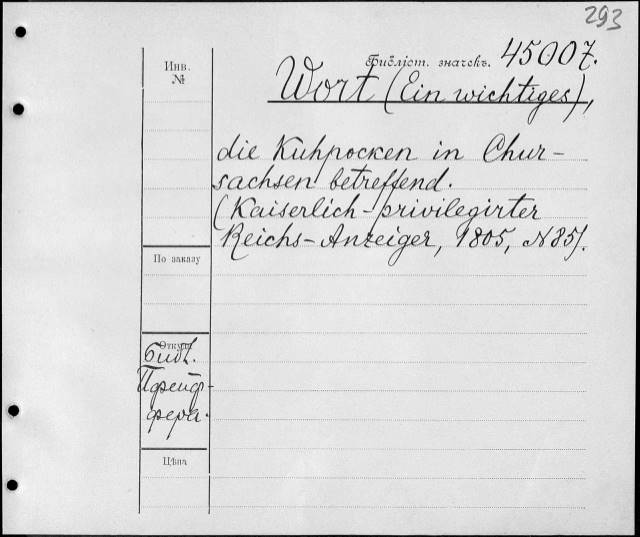 293
Библіот. значекъ. 45007.
Инв.
№
Wort (Ein wichtiges),
die Kuhpocken in Chur-
sachsen betreffend.
(Kaiserlich-privilegirter
Reichs-Anzeiger, 1805, N 85).
По заказу
Откуда
Библ.
Пфейф-
фера.
Цѣна